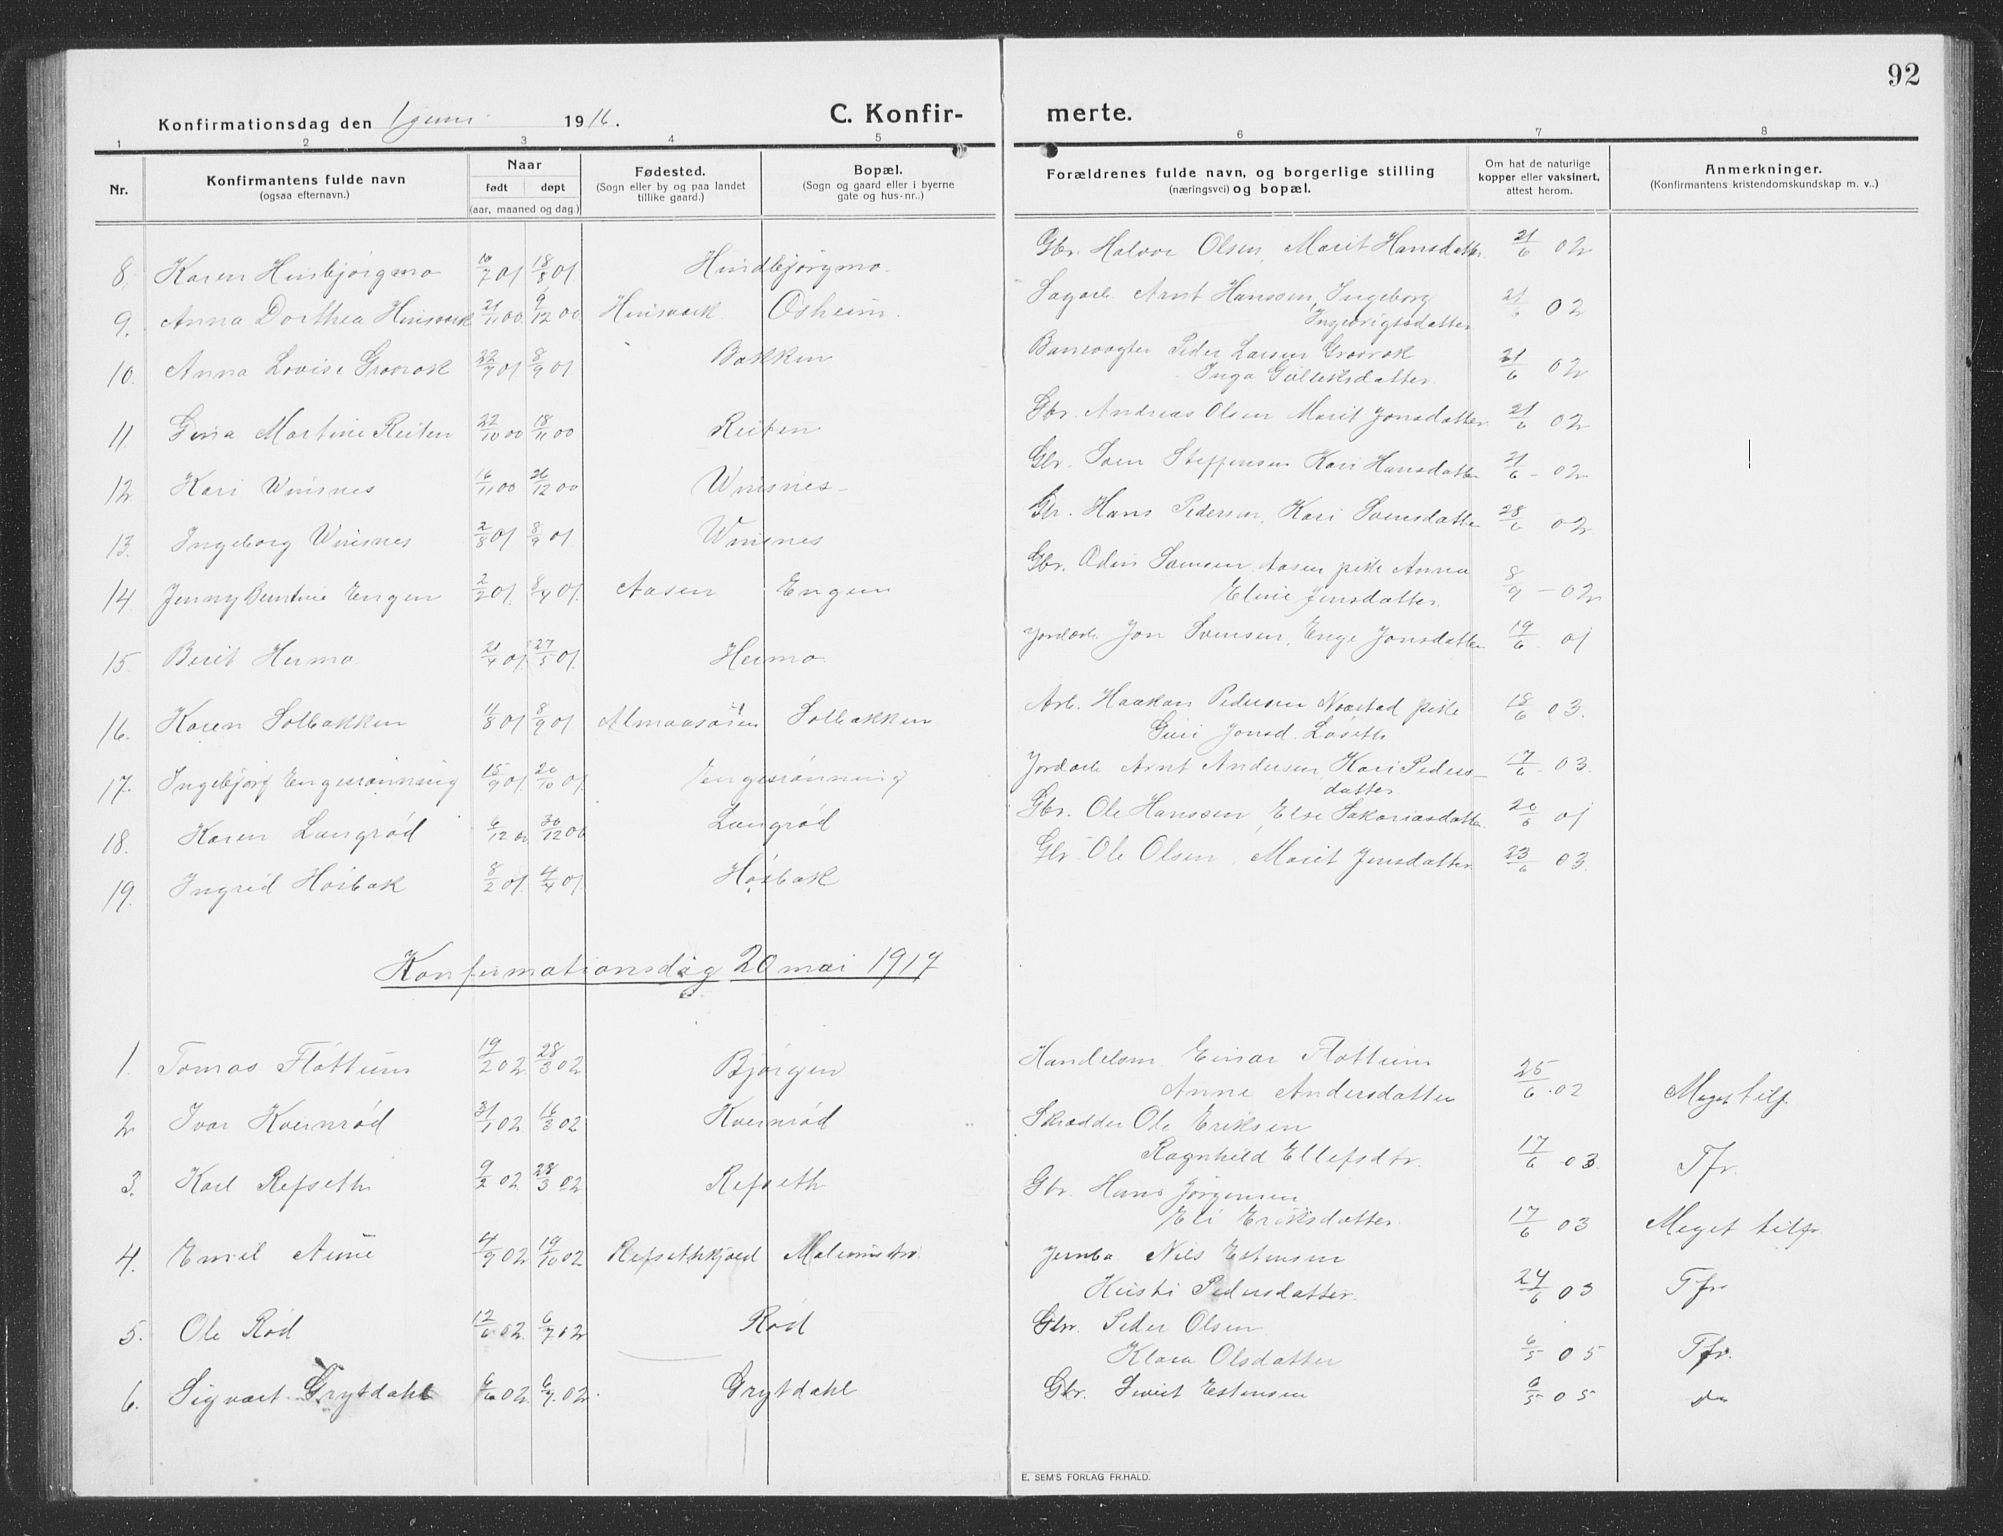 92
Konfirmationsdag den 1 juni 1916. C. Konfir- merte.
1 2 3 4 5 6 7 8
Nr. Konfirmantens fulde navn (ogsaa efternavn.) Naar født døpt (aar, maaned og dag.) Fødested. (Sogn eller by og paa landet tillike gaard.) Bopæl. (Sogn og gaard eller i byerne gate og hus-nr..) Forældrenes fulde navn, og borgerlige stilling (næringsvei) og bopæl. Om hat de naturlige kopper eller vaksinert, attest herom. Anmerkninger. (Konfirmantens kristendomskundskap m. v..)
8. Karen Hinbjørgmo 16/7 01 18/8 01. Hindbjørgmo. Gbr. Halvor Olsen, Marit Hansdatter 21/6 02
9. Anna Dorthea Hinsverk 21/11 00 9/12 00 Hinsverk Osheim. Sagarb. Arnt Hanssen, Ingeborg 21/6 02
Ingebrigtsdatter
10. Anna Lovise Grovrok 22/7 01 8/9 01 Bakken Banevogter Peder Larsen Grovrok 21/6 02
Inga Gulleiksdatter
11. Gina Martine Reiten 22/10 00 18/11 00 Reiten Gbr. Andreas Olsen Marit Jonsdatter 21/6 02
12 Kari Winsnes 16/11 00 26/12 00 Winsnes - Gbr. Sven Steffensen Kari Hansdatter 21/6 - 02
13. Ingeborg Winsnes 2/8 01 8/9 01 Winsnes Gbr. Hans Pedersen, Kari Svensdatter 28/6 02
14 Jenny Berntine Engen 2/2 01. 8/4 01. Aasen Engen Gbr. Odin Samsen Aasen pike Anna 8/9 - 02
Eline Jensdatter.
15. Berit Hermo 21/4 01. 27/5 01. Hermo Jordarb. Jon Svensen, Enge Jonsdatter 19/6 01
16. Karen Solbakken 11/8 01 8/9 01 Almaasøien Solbakken Arb. Haakon Pedersen Naastad pike 18/6 03.
Guri Jonsd. Løseth
17. Ingebjørg Engesrønning 15/9 01. 20/10 01. Engesrønning Jordarb Arnt Andersen, Kari Peders- 17/6 - 03.
datter.
18. Karen Langrød 6/12 00 30/12 00 Langrød Gbr. Ole Hanssen, Else Sakariasdatter. 20/6 01
19. Ingrid Høsbak 8/2 01. 4/4 01. Høsbak Gbr. Ole Olsen, Marit Jensdatter. 23/6 03.
Konfirmationsdag 20 mai 1917
1. Tomas Fløttum 19/2 02. 28/3 02 Bjørgen Handelsm. Einar Fløttum
Anne Andersdatter 25/6 .02 Meget tilf.
2 Ivar Kvernrød 31/1 02 16/3 02 Kvernrød Skrædder Ole Eriksen
Ragnhild Ellefsdtr. 17/6 03. Tfr.
3. Karl Refseth 9/2 02 28/3 02 Refseth Gbr. Hans Jørgensen
Eli Eriksdatter. 17/6 03 Meget tilfr.
4. Emil Aune 4/9 02 19/10 02 Refsethkjøld Jernba Nils Estensen
Kirsti Pedersdatter. 24/6 03 Tfr.
5. Ole Rød 12/6 02. 6/7 02 Rød Gbr. Peder Olsen
Klara Olsdatter 6/5 05 Tfr.
6. Sigvart Grytdahl 6/6 02 6/7. 02. Grytdahl Gbr. Sivert Estensen 6/5 05 do
E. SEM'S FORLAG FR.HALD.